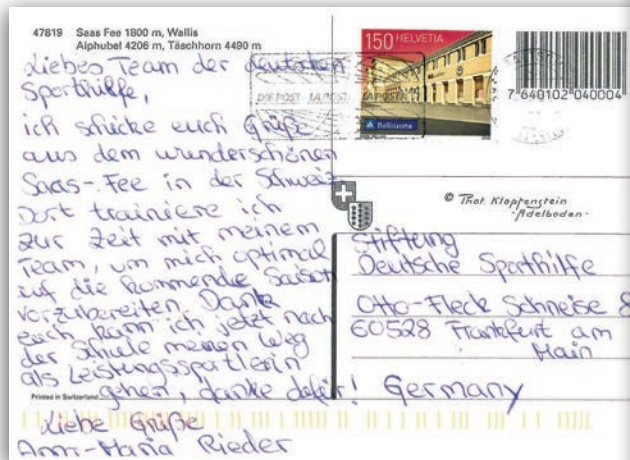 47819 Saas Fee 1800 m, Wallis
Alphubel 4206 m, Täschhorn 4490 m
Liebes Team der deutschen
Sporthilfe,
ich schicke euch Grüße
aus dem wunderschönen
Saas-Fee in der Schweiz
Dort trainiere ich
zur Zeit mit meinem
Team, um mich optimal
auf die kommende Saison
vorzubereiten. Dank
euch kann ich jetzt nach
der Schule meinen Weg
als Leistungssportlerin
gehen, danke dafür!
Liebe Grüße
Anna-Maria Rieder
Printed in Switzerland
150 HELVETIA
Bellinzona
DIE POST LA POSTE LA POSTA
7 640102 040004
© Phot. Klopfenstein
-Adelboden-
Stiftung
Deutsche Sporthilfe
Otto-Fleck Schneise 8
60528 Frankfurt am
Main
Germany